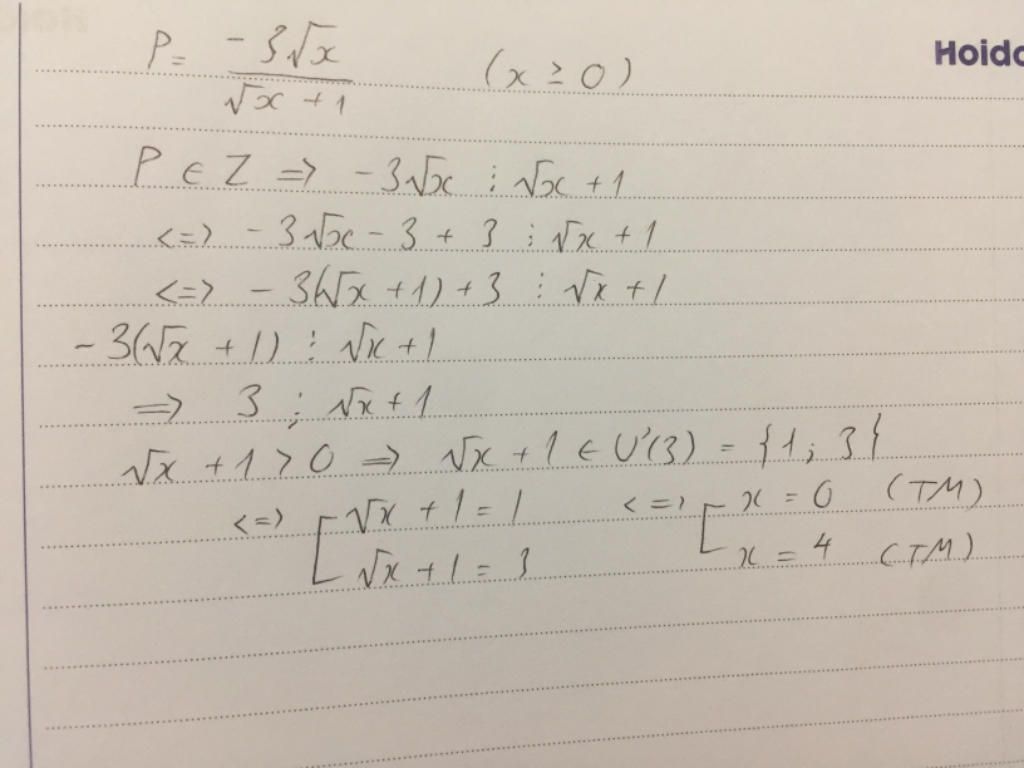 Hoido
P = -3√x / (√x + 1) (x ≥ 0)
P ∈ Z => -3√x ⋮ √x + 1
<=> -3√x - 3 + 3 ⋮ √x + 1
<=> -3(√x + 1) + 3 ⋮ √x + 1
-3(√x + 1) ⋮ √x + 1
=> 3 ⋮ √x + 1
√x + 1 > 0 => √x + 1 ∈ Ư(3) = {1; 3}
<=> [ √x + 1 = 1 <=> [ x = 0 (TM)
√x + 1 = 3 x = 4 (TM)